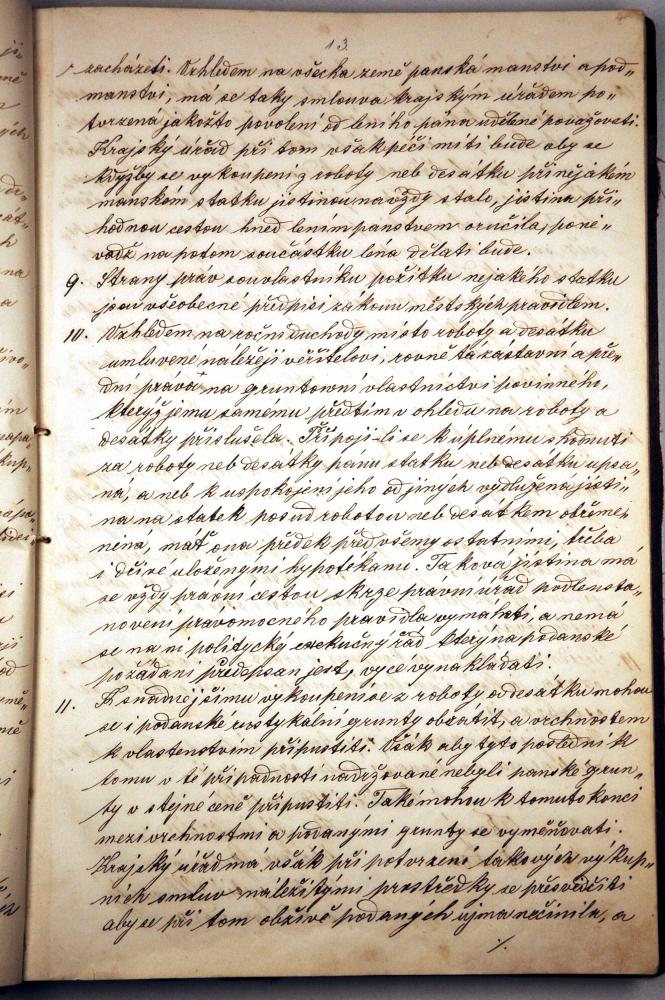 13.
zacházeti. Vzhledem na všecka země panská manství a pod„
manství, má se taky smlouva krajským úřadem po„
tvrzená jakožto povolení od leního pána udělené považovati.
Krajský úřad při tom však péči míti bude aby se
kdyžby se vykoupení z roboty neb desátku při nějakém
manském statku jistinou navždy stalo, jistina pří„
hodnou cestou hned lením panstvem oručila, poně„
vadž na potom součástku léna dělati bude.
9. Strany práv souvlastníku požitku nejakého statku
jsou všeobecné předpisi zákonu městských pravidlem.
10. Vzhledem na roční duchody místo roboty a desátku
umluvené naležejí věřitelovi, rovně tá zástavní a pře„
dní práva na gruntovní vlastnictví povinného,
kterýž jemu samému předtím v ohledu na roboty a
desátky příslušela. Připojí-li se k úplnému shodnutí
za roboty neb desátky pánu statku neb desátku upsa„
ná, a neb k uspokojení jeho od jiných vydlužená jisti„
na na statek posud robotou neb desátkem obřeme„
něná, máť ona předek před všemy ostatními, třeba
i dříve uloženými hypotékami. Taková jistina má
se vždy právní cestou skrze právní úřad podle usta„
novení právomocného pravidla vymáhati, a nemá
se na ni politycký exekučný řád který na podanské
požádaní předepsan jest, vyce vynakládati.
11. K snadnějšímu vykoupení se z roboty od desátku mohou
se i podanské rustykální grunty obrátit, a vrchnostem
k vlastenstvím připustiti. Však aby tyto poslední k
tomu v té případnosti nadržované nebyli panské grun„
ty v stejné ceně připustiti. Také mohou k tomuto konci
mezi vrchnostmi a podanými grunty se vyměňovati.
Krajský úřad má však při potvrzení takových výkup„
ních smluv náležitými prostředky se přesvědčiti
aby se při tom obživě podaných ujma nečinila, a
./.